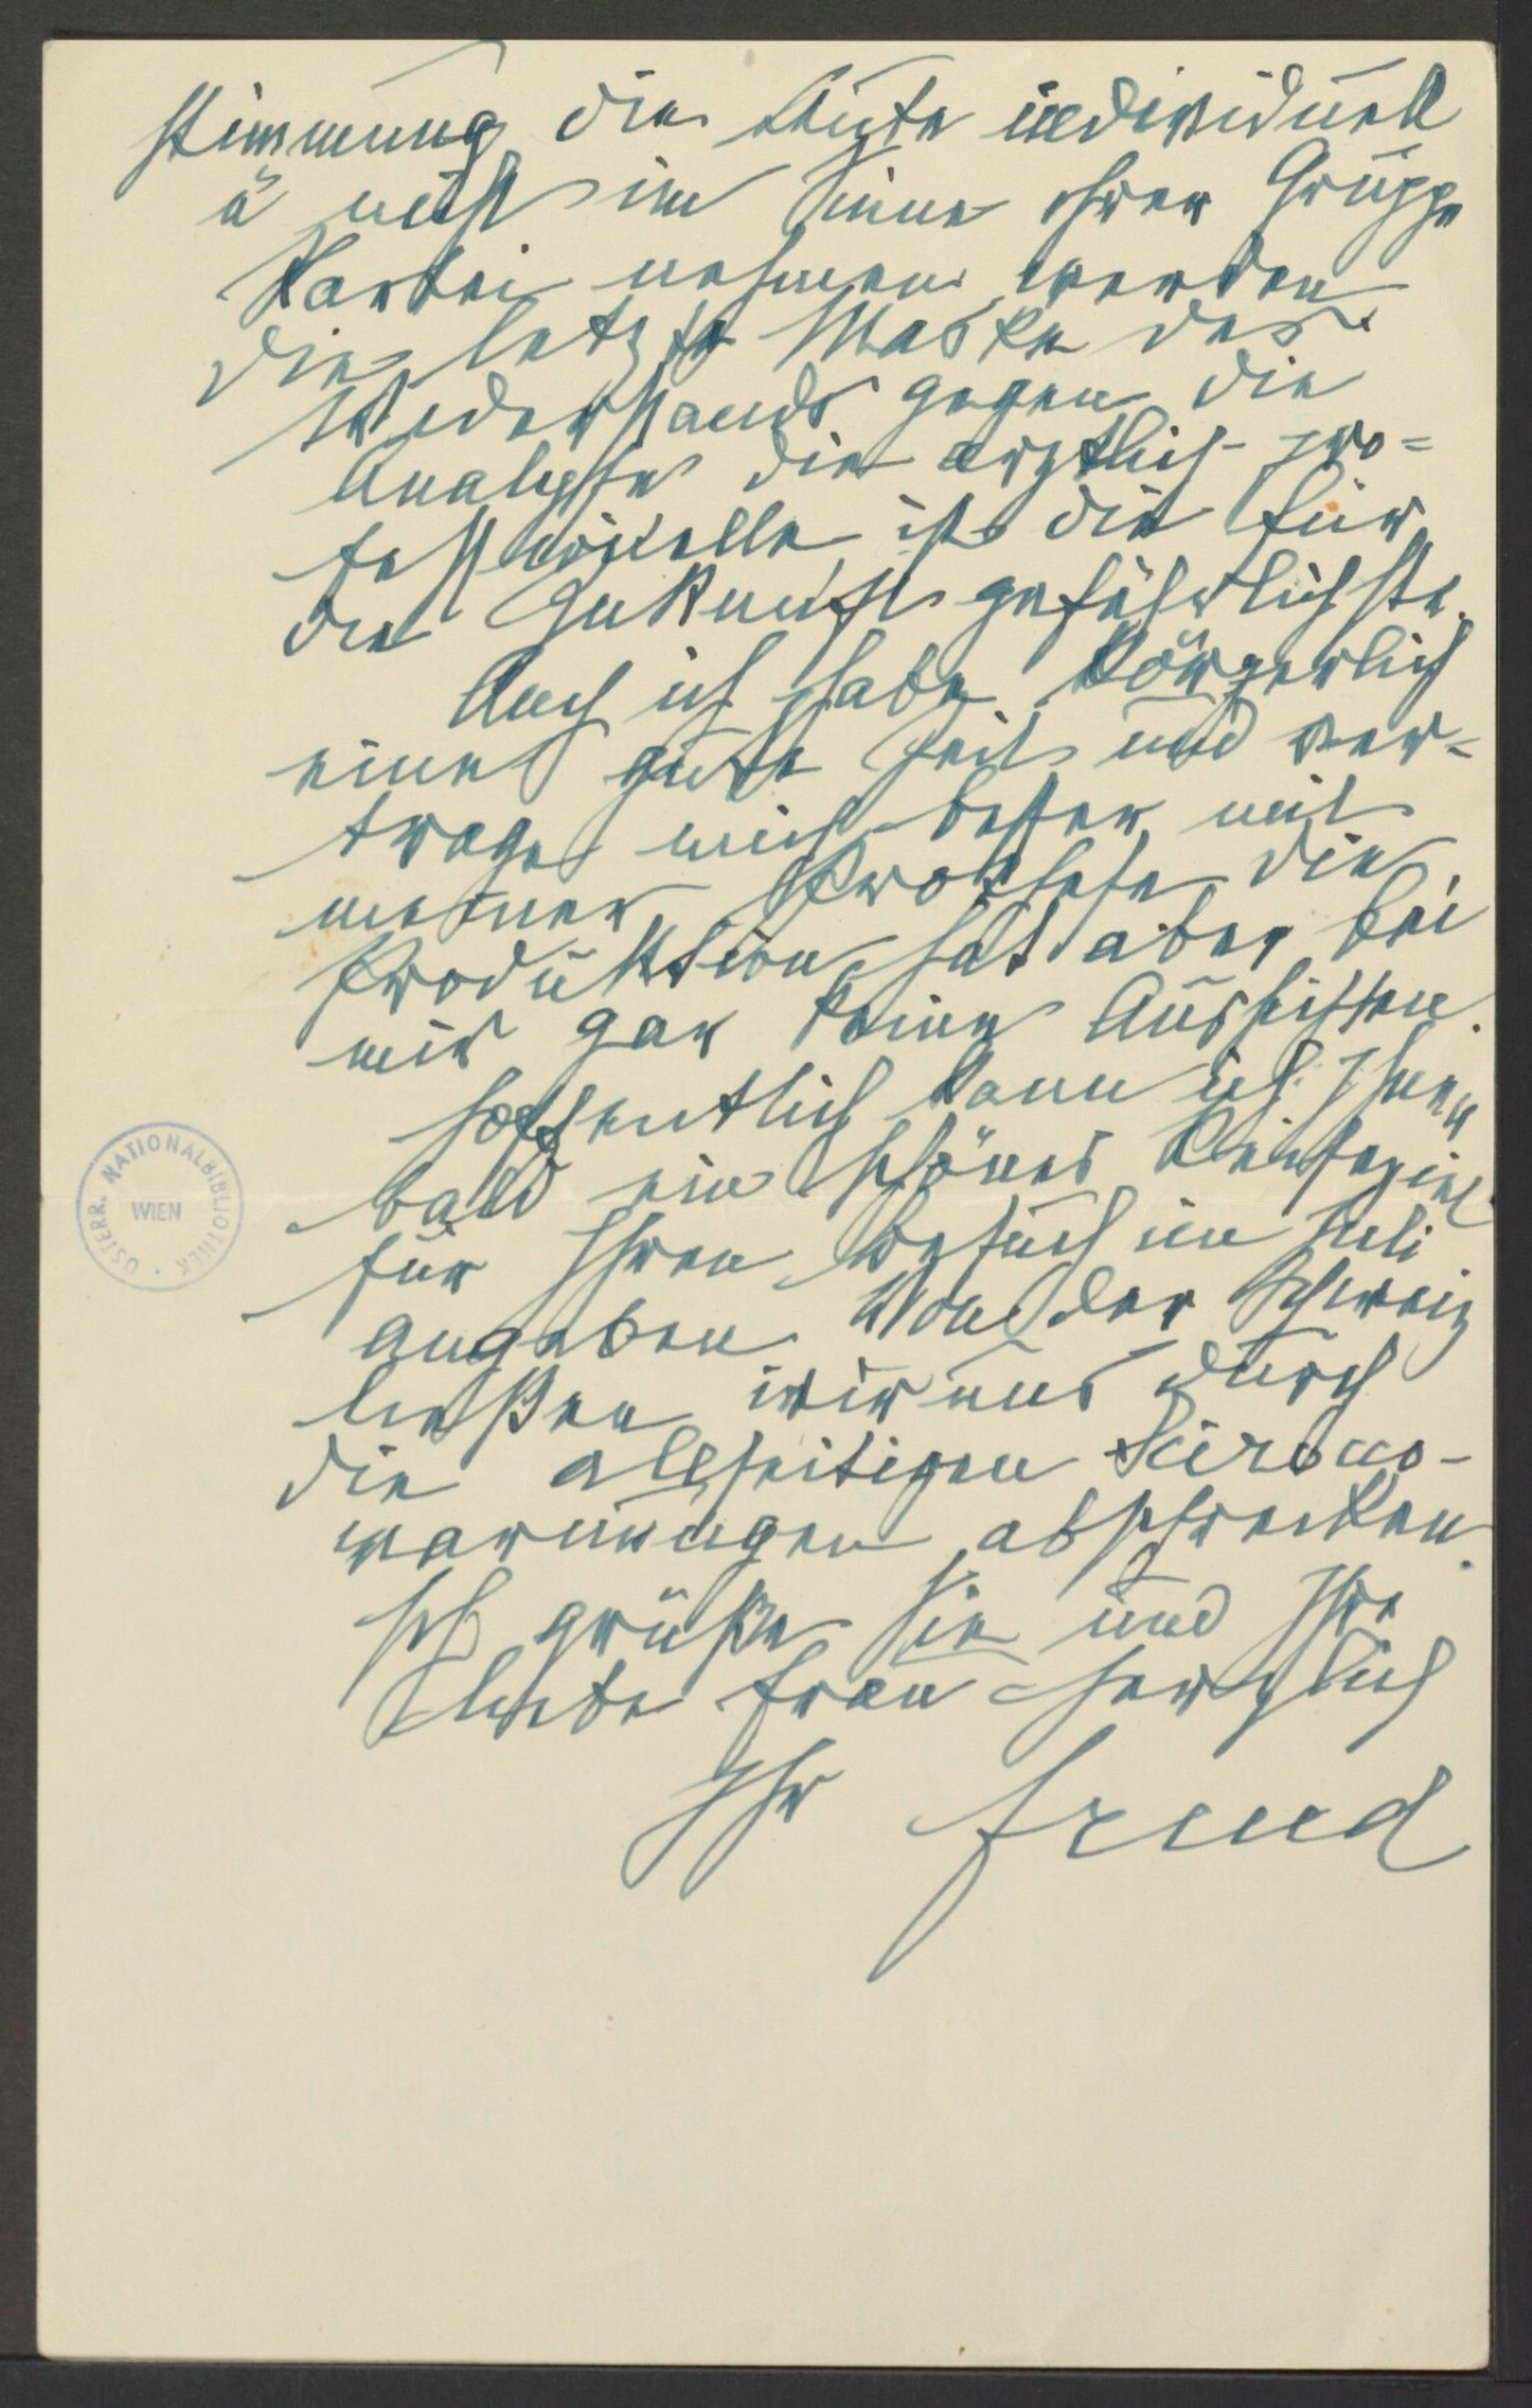 stimmung die Ärzte individuell
u nicht im Sinne ihrer Gruppe
Partei nehmen werden
die letzte Maske des
Widerstands gegen die
Analyse die ärztlich-pro=
fessionelle ist die für
die Zukunft gefährlichste.
Auch ich habe körperlich
eine gute Zeit und ver-
trage mich besser mit
meiner Prothese, die
Produktion hat aber bei
mir gar keine Aussichten.
Hoffentlich kann ich Ihnen
bald ein schönes Reiseziel
für Ihren Besuch im Juli
angeben. Von der Schweiz
ließen wir uns durch
die allseitigen
warnungen abschrecken.
Ich grüße Sie und Ihre
liebe Frau herzlich
Ihr Freud
ÖSTERR. NATIONALBIBLIOTHEK
WIEN